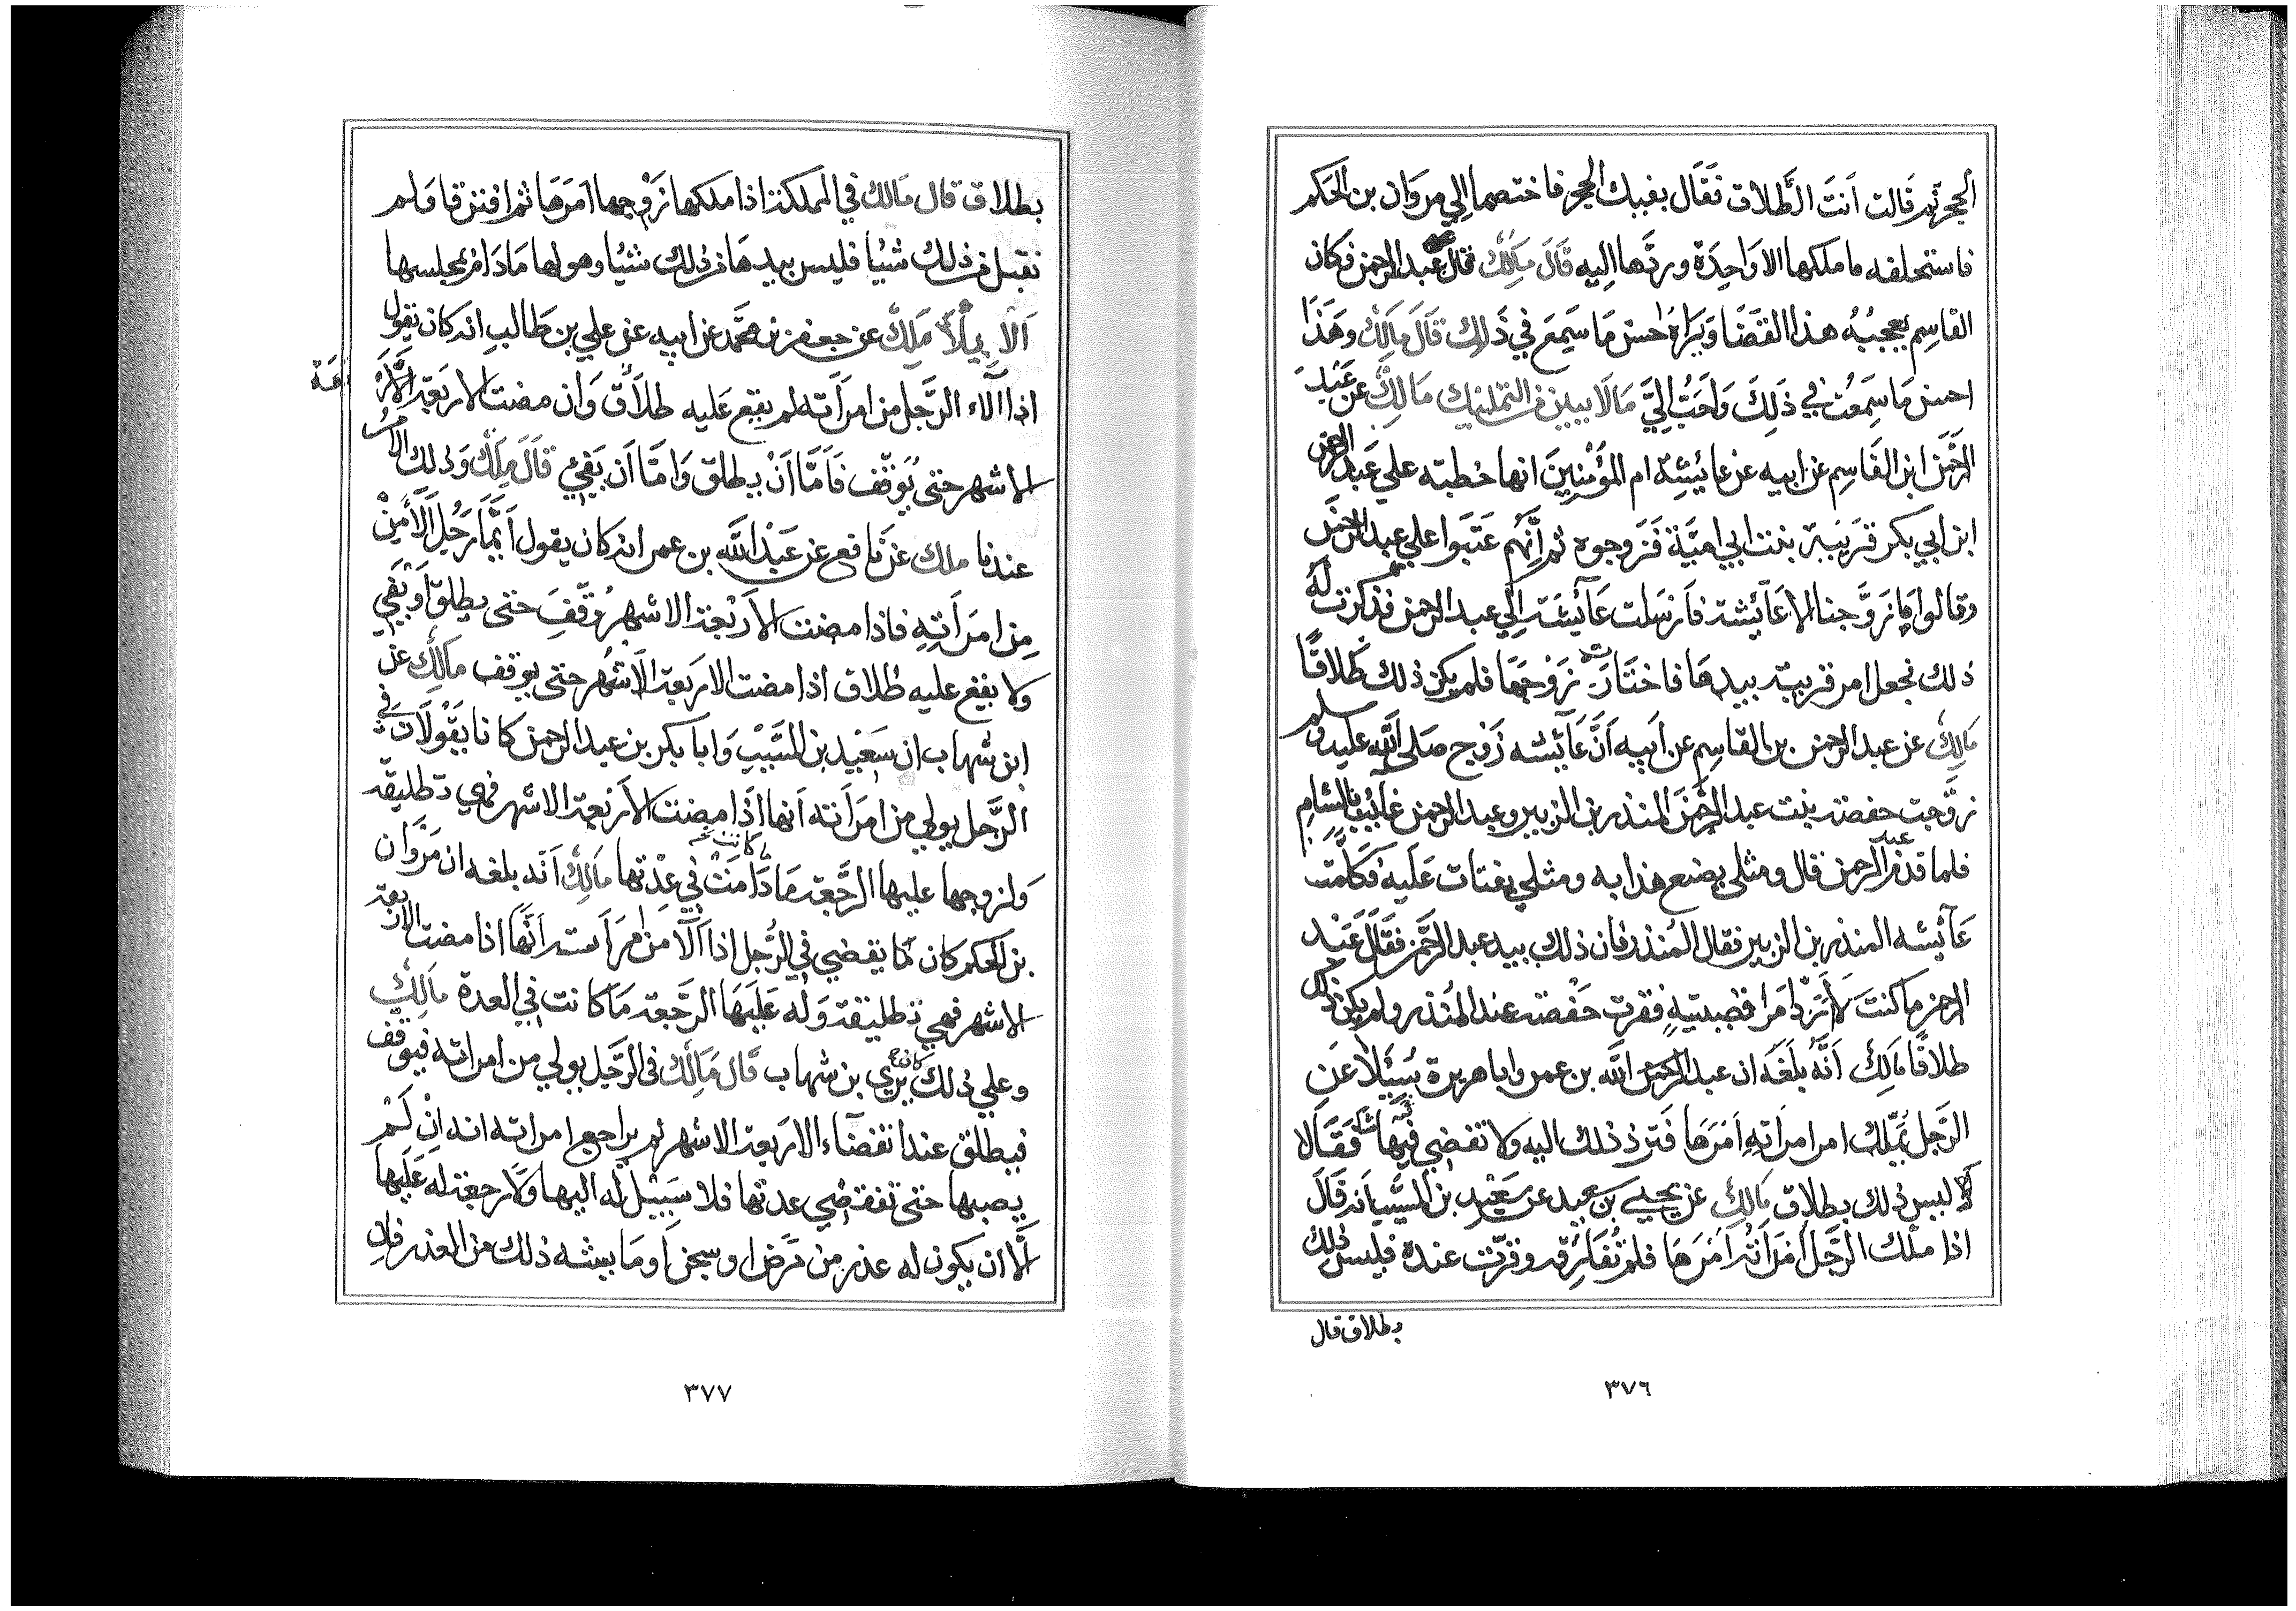 الحجر ثم قالت اَنتَ الطَّلاق فقَال بفيك الحجر فاختصما اِلي مروَان بن الحَكم
فاستحلفه ما ملكها الا وَاحِدَة وردَّها اِليه قَالَ مَالِكٌ قال عبد الرحمن فكان
القاسِم يعجبُهُ هذا القضَا وَيَرَاهُ احسن مَا سَمِعَ في ذَلِك قَالَ مَالِكٌ وهَذَا
احسن مَا سَمِعْتُ في ذَلِكَ وَاَحَبُّ اِلَيَّ مَا لَا يبين من التمليك مَالِكٌ عن عَبْدِ
الرَّحمَن ابن القَاسِم عن ابيه عن عائِشَة ام المؤمنِينَ انها خطبت علي عَبد الرحمن
ابن ابي بكر قَرِيَبة بنت ابي اميَّة فَزَوجوه ثم اِنَّهُم عَتَبوا علي عبد الرحمن
وقالوا مَا زوَّجنا الا عَائشة فاَرْسَلت عَائشة اِلَي عبد الرحمن فذكرت لَهُ
ذلك فجعل امر قريبة بيدهَا فاختَارَت زَوْجَهَا فلم يكن ذلك طَلاقًا
مَالِكٌ عن عبد الرحمن بن القاسِم عن اَبيه اَنَّ عَائشه زَوْج صَلى الله عليه وسلم
زوَّجت حفصة بنت عبد الرَّحمَن المنذر بن الزبير وعبد الرحمن غَائِب بالشامِ
فلما قدم عبد الرحمن قال ومثلى يصنع هذا به ومثلي يفتات عَلَيه فكَلَّمَت
عَائِشه المنذر بن الزبير فقال المُنذر فان ذلك بيد عبد الرَّحمن فقَالَ عَبْد
الرحمن ما كنتَ لأَرُدَّ اَمرَا قضيتيهِ فقرت حَفْصَة عند المُنذر ولم يكن ذلك
طلاقًا مَالِكٌ اَنَّهُ بَلَغَه ان عبد الله بن عمر وابا هريرة سُئِلا عَن
الرَّجل يُمَلّك امرَاَتهِ اَمرَهَا فترد ذلك اليه ولا تقضي فيهَا شيا فقَالا
ليس ذلك بطلاق مَالِكٌ عن يحيي بن سعيد عن سَعِيْدِ بن المسَيّب اَنه قَالَ
اذا ملّك الرَّجل اَمرَاَتهُ اَمرَهَا فلم تُفَارِقه وقرّت عنده فليس ذلك
بطلاق قال
٣٧٦
بطلاق قال مَالك في المملكة اذا ملكها زَوْجها اَمرَهَا ثم افترقا وَلم
تقبل من ذلك شيْئا فليس بيدهَا من ذلك شيْئا وهو لها مَا دَامَا في مجلسها
اَلْاِيلَا مَلِكٌ عن جعفر بن محَمَّد عن ابيه عن علي بن طَالب انه كان يقول
اذا الاء الرَّجل من امرَاَته لم يقع عَليه طلاَقٌ وَان مضت الاربَعة
الاشهر حتى يُوقف فَاَمَّا اَنْ يطلق وَاِمّا اَن يَفيْ قَالَ مَلِكٌ وَذلك الاَمرُ
عندنا ملك عَن نافع عن عَبْد الله بن عمر انه كان يقول اَيّمَا رَجُل اَلَا
مِن امرَاَتِهِ فاذا مضت الاَرْبَعة الاشهر وُقِفَ حتى يطلق اَوْ يَفي
ولا يقع عليه طُلاق اذا مضت الاربَعة الاَشهُر حتى يوقف مَالِكٌ عن
ابن شهاب ان سَعِيْد بن المسَّيبِ وَابا بكر بن عبد الرحمن كانا يَقُولَان في
الرَّجل يولي من امرَاَته اَنها اِذَا مضت الاَربَعة الاشهر فهي تطليقة
وَلزوجها عليها الرَّجْعة مَا كانت في عدّتها مَالِكٌ اَنّه بلغه ان مَرْوَان
بن الحكم كان يقضي في الرُّجل اذا آلَا من امرَاَته اَنَّها اذا مضت الاربعة
الاشهر فهي تطليقة وَلَه عَلَيهَا الرَّجْعة مَا كانت في العدة مَالِكٌ
وعلي ذلك كان رَايُ بن شهاب قَال مَالِكٌ في الرَّجل يولي من امراته فيوقف
فيطلق عند انقضَاء الاربَعة الاشهر ثم يراجع امراته انه اِنْ لَمْ
يصبها حتى تنقضي عدتها فلا سَبيْل له اليها وَلاَ رجعة له عَلَيها
اِلَّا ان يكون له عذر من مَرَض او سجن اَو مَا يشبه ذلك من العذر فان
٣٧٧